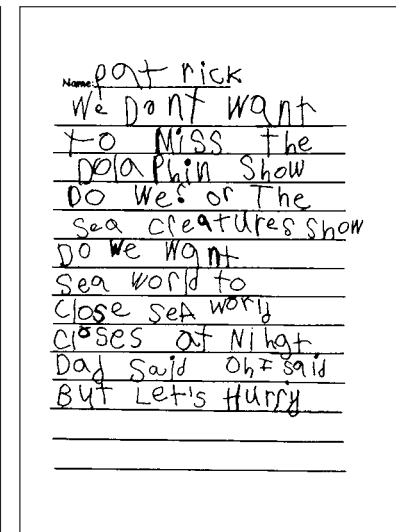 Name: patrick
We Dont want
to Miss the
Dolaphin Show
Do We? or The
Sea creatures show
Do we want
Sea world to
close sea world
closes at Nihgt
Dad said Oh I said
But Let's Hurry